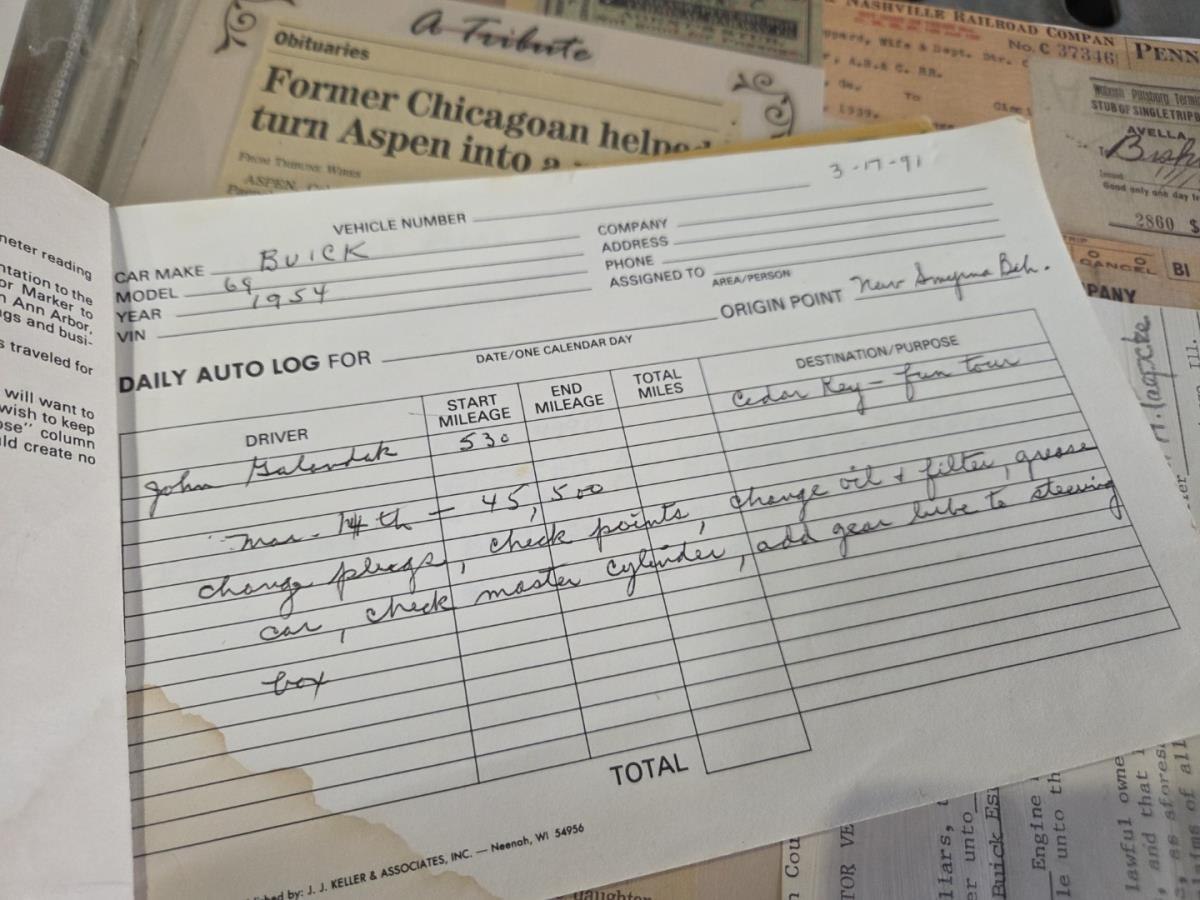 A Tribute
Obituaries
Former Chicagoan helped
turn Aspen into a
FROM TRIBUNE WIRES
ASPEN,
NASHVILLE RAILROAD COMPAN
No. C 37346
Wife & Dept.
A.B.& C. RR.
To
1939.
PENN
STUB OF SINGLE TRIP
AVELLA
To
Issued
Good only one day
2860 $
CANCEL
BI
PANY
neter reading
ntation to the
or Marker to
n Ann Arbor,
gs and busi-
s traveled for
will want to
wish to keep
ose" column
ld create no
3-17-91
VEHICLE NUMBER
CAR MAKE BUICK
MODEL 69
YEAR 1954
VIN
COMPANY
ADDRESS
PHONE
ASSIGNED TO
AREA/PERSON
ORIGIN POINT New Smyrna Bch.
DAILY AUTO LOG FOR
DATE/ONE CALENDAR DAY
DRIVER START MILEAGE END MILEAGE TOTAL MILES DESTINATION/PURPOSE
John 530 Cedar Key - fun tour
Mar. 14th - 45,500
change plugs, check points, change oil + filter, grease
car, check master cylinder, add gear lube to steering
box
TOTAL
shed by: J. J. KELLER & ASSOCIATES, INC. — Neenah, WI 54956
daughter
n Cou
TOR VE
llars,
er unto
Buick Es
Engine
le unto th
lawful owne
, and that
, as afores
ims of all
Ill.